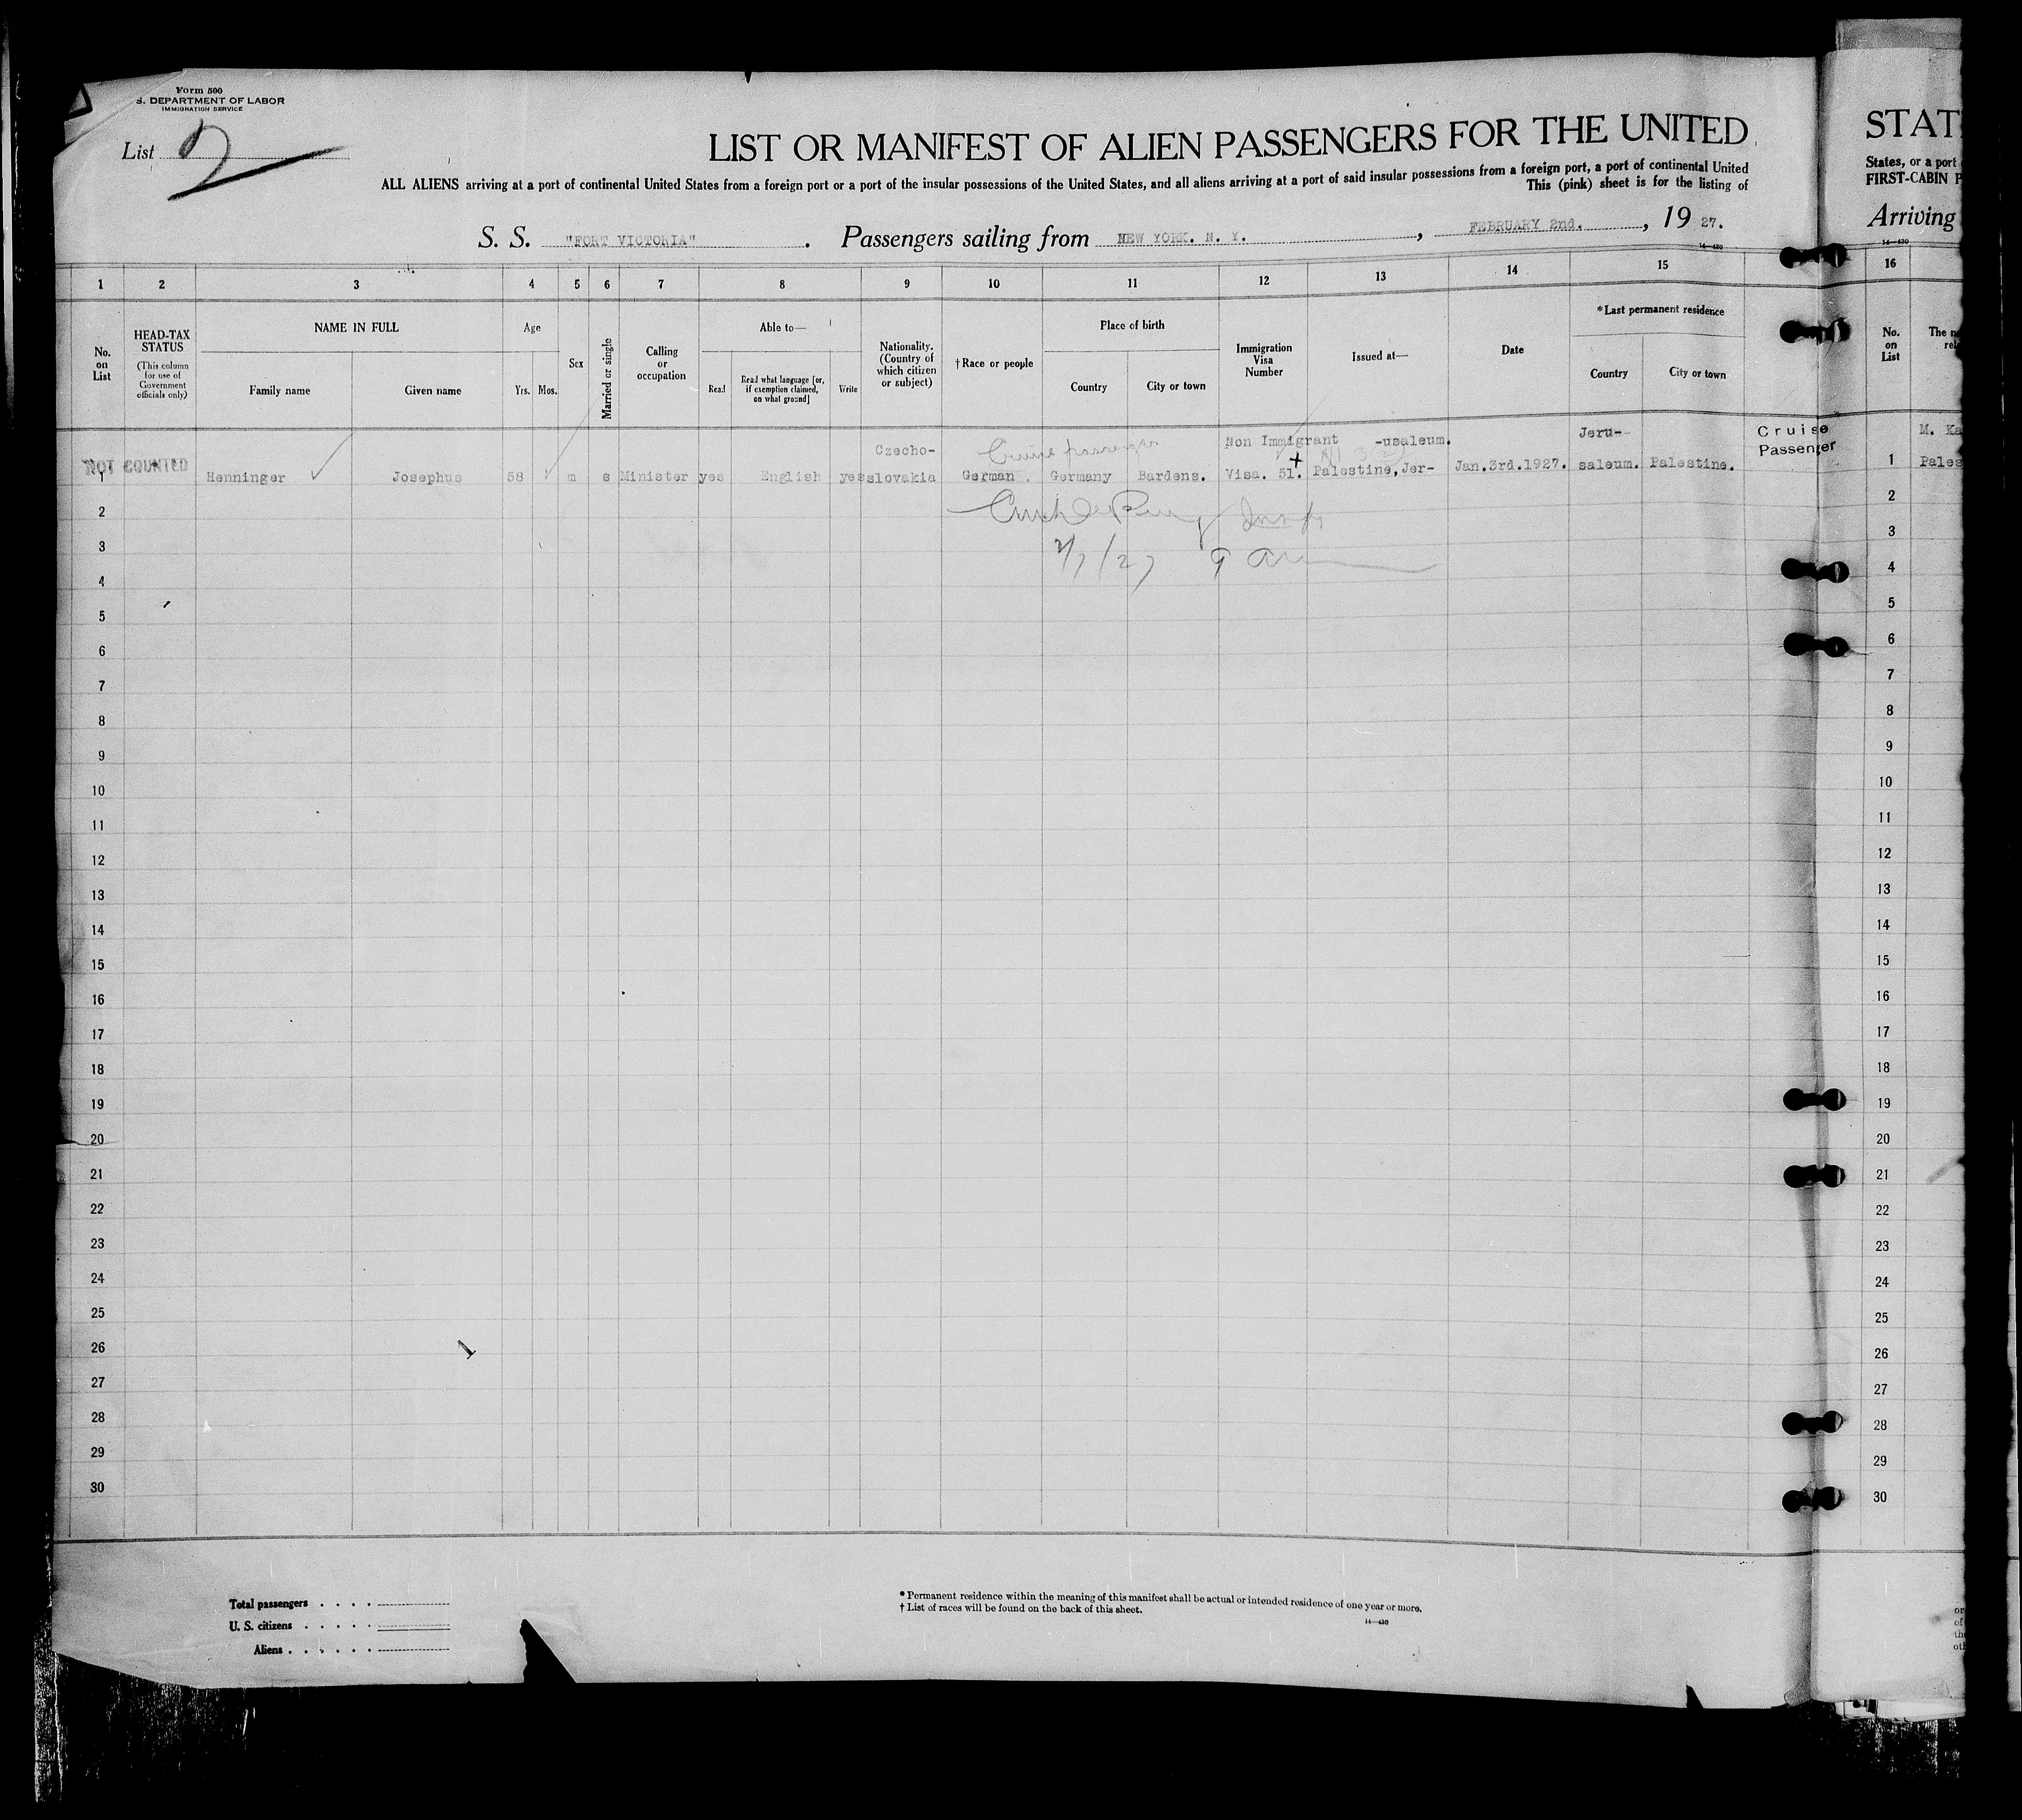 Form 500
S. DEPARTMENT OF LABOR
IMMIGRATION SERVICE
List 2
LIST OR MANIFEST OF ALIEN PASSENGERS FOR THE UNITED
ALL ALIENS arriving at a port of continental United States from a foreign port or a port of the insular possessions of the United States, and all aliens arriving at a port of said insular possessions from a foreign port, a port of continental United
This (pink) sheet is for the listing of
S. S. "FORT VICTORIA" . Passengers sailing from NEW YORK. N. Y. , FEBRUARY 2nd. , 19 27.
14—430
1 2 3 4 5 6 7 8 9 10 11 12 13 14 15
No. on List
HEAD-TAX STATUS
(This column for use of Government officials only)
NAME IN FULL
Family name Given name
Age
Yrs. Mos.
Sex
Married or single
Calling or occupation
Able to—
Read
Read what language [or, if exemption claimed, on what ground]
Write
Nationality. (Country of which citizen or subject)
†Race or people
Place of birth
Country City or town
Immigration Visa Number
Issued at—
Date
*Last permanent residence
Country City or town
NOT COUNTED
Cruise passenger
Czecho-
Non Immigrant -usaleum. Jeru- Cruise
Passenger
1 Henninger Josephus 58 m s Minister yes English yes slovakia German. Germany Bardens. Visa. 51. Palestine, Jer- Jan.3rd.1927. saleum. Palestine.
2
3
2/7/27 9 am
4
5
6
7
8
9
10
11
12
13
14
15
16
17
18
19
20
21
22
23
24
25
26
27
28
29
30
Total passengers . . . .
U. S. citizens . . . . .
Aliens . . . . . .
* Permanent residence within the meaning of this manifest shall be actual or intended residence of one year or more.
† List of races will be found on the back of this sheet.
14—430
STAT
States, or a port
FIRST-CABIN P
Arriving
14—430
16
No. on List
The n
rel
M. Ka
1 Pales
2
3
4
5
6
7
8
9
10
11
12
13
14
15
16
17
18
19
20
21
22
23
24
25
26
27
28
29
30